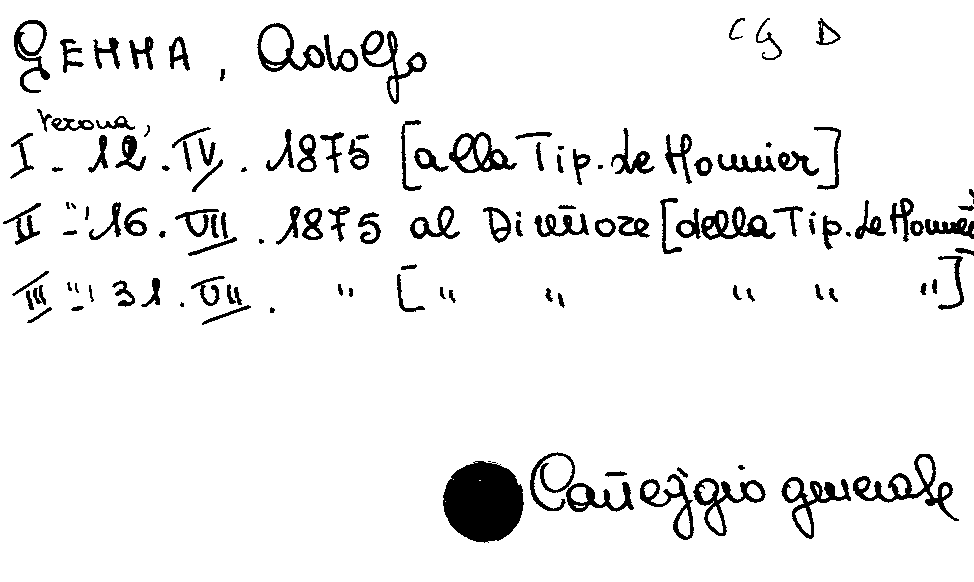 GEMMA, Adolfo CG D
Verona,
I - 12. IV. 1875 [alla Tip. Le Monnier]
II " 16. VII. 1875 al Direttore [della Tip. Le Monnier
III " 31. VII. " [" " " " "]
Carteggio generale